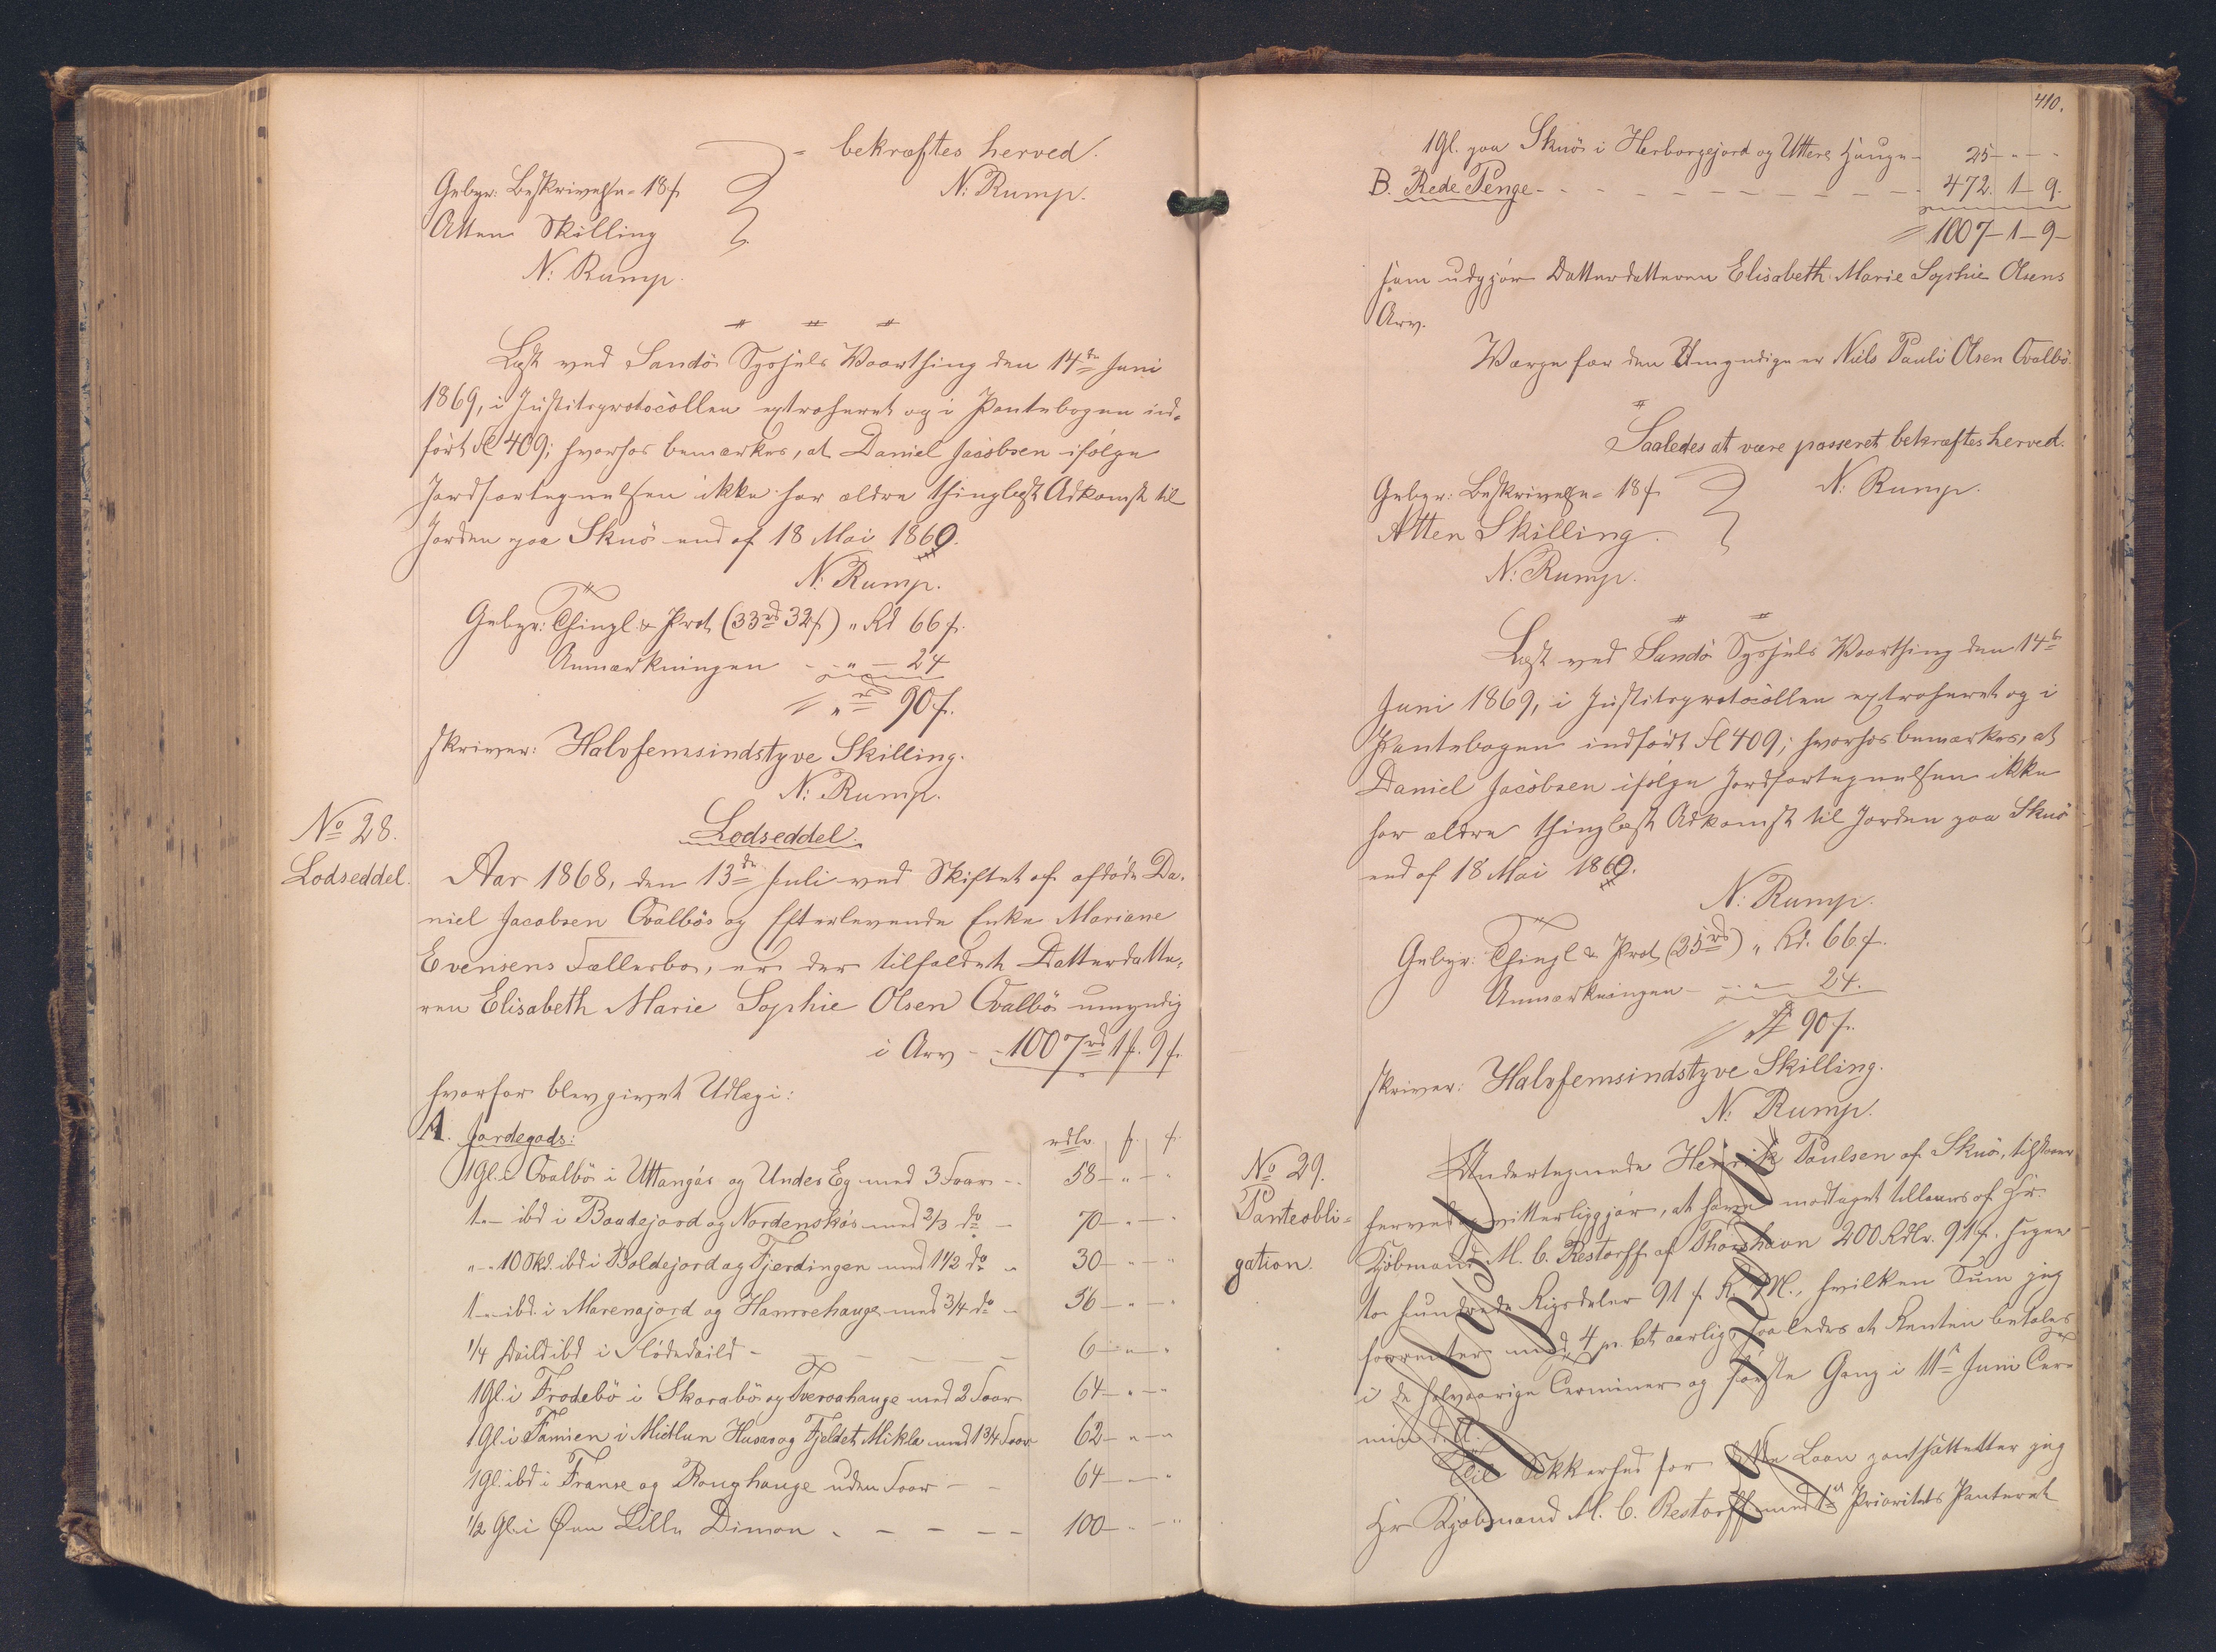 = bekræftes herved.
Gebyr: Beskrivelse = 18 f.
N: Rump.
Atten Skilling
N: Rump.
Læst ved Sandö Syssels Vaarthing den 14de Juni
1869, i Justitsprotocollen extraheret og i Pantebogen ind-
ført fl 409; hvorhos bemærkes, at Daniel Jacobsen ifölge
Jordfortegnelsen ikke har ældre thinglæst Adkomst til
Jorden paa Skuö end af 18 Mai 1869.
N: Rump.
Gebyr: Thingl. & Prot. (33rd 32f) " Rd 66 f.
Anmærkningen - - " - 24
" rd 90 f.
skriver: Halvfemsindstyve Skilling.
N: Rump.
No 28.
Lodseddel.
Lodseddel.
Aar 1868, den 13de Juli ved Skiftet af afdöde Da-
niel Jacobsen Qvalbös og Efterlevende Enke Mariane
Evensens Fællesbo, er der tilfaldet Datterdatte-
ren Elisabeth Marie Sophie Olsen Qvalbö umyndig
i Arv - - 1007rd 1f. 9f.
hvorfor blev givet Udlæg i:
A. Jordegods: rdlr. f. f.
1 Gl. i Qvalbö i Uttangás og Under Eg med 3 Foar - - 58 - " - "
1 " - ibd i Boadejord og Nordenskós med 2/3 do - 70 - " - "
" - " 10 Skd. ibd i Boldejord og Fjerdingen med 1 1/2 do " 30 - " - "
1 " - ibd. i Marenajord og Hamrehauge med 3/4 do - 56 - " - "
1/4 Daild ibd i Flödedaild - 6 - " - "
1 Gl. i Frodebö i Skarabö og Tveraahauge med 2 Foar 64 - " - "
1 Gl. i Famien i Midlun Husar og Fjeldet Mikla med 1 3/4 Foar 62 - " - "
1 Gl. ibd i Franse og Roughauge uden Foar - - 64 - " - "
1/2 Gl. i Öen Lille Dimon - - - - - 100 - " - "
410.
1 Gl. paa Skuö i Herborgejord og Uttere Hauge - 25 - " - "
B. Rede Penge - - - - - - - - 472. 1 - 9.
1007 - 1 - 9 -
som udgjör Datterdatteren Elisabeth Marie Sophie Olsens
Arv.
Værge for den Umyndige er Niels Pauli Olsen Qvalbö.
Saaledes at være passeret bekræftes herved.
Gebyr: Beskrivelse = 18 f.
N: Rump.
Atten Skilling.
N: Rump.
Læst ved Sandö Syssels Vaarthing den 14de
Juni 1869, i Justitsprotocollen extraheret og i
Pantebogen indfört fl 409; hvorhos bemærkes, at
Daniel Jacobsen ifölge Jordfortegnelsen ikke
har ældre thinglæst Adkomst til Jorden paa Skuö
end af 18 Mai 1869.
N: Rump.
Gebyr: Thingl & Prot. (25rd) " Rd. 66 f.
Anmærkningen - - " - 24.
90 f.
skriver: Halvfemsindstyve Skilling.
N: Rump.
No 29.
Panteobli-
gation.
Undertegnede Henrik Paulsen af Skuö, tilstaaer
herved og vitterliggjör, at have modtaget tillaans af Hr.
Kjöbmand M. C. Restorff af Thorshavn 200 Rdlr. 91 f. siger
to hundrede Rigsdaler 91 f R. M., hvilken Sum jeg
forrenter med 4 pr. Ct aarlig, saaledes at Renten betales
i de halvaarige Terminer og förste Gang i 11te Juni Ter-
min d. A.
Til Sikkerhed for dette Laan pantsætter jeg
Hr Kjöbmand M. C. Restorff med 1ste Prioritets Panteret